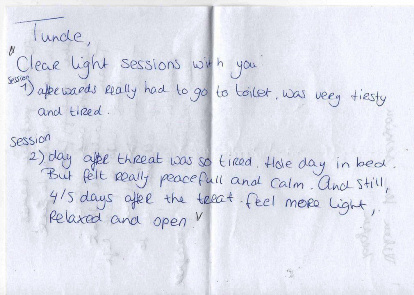 Tunde,
" Clear light sessions with you
Session
1) afterwards really had to go to toilet, was very tiesty
and tired.
Session
2) day after threat was so tired. Hole day in bed.
But felt really peacefull and calm. And still,
4/5 days after the treat. feel more light,
relaxed and open "